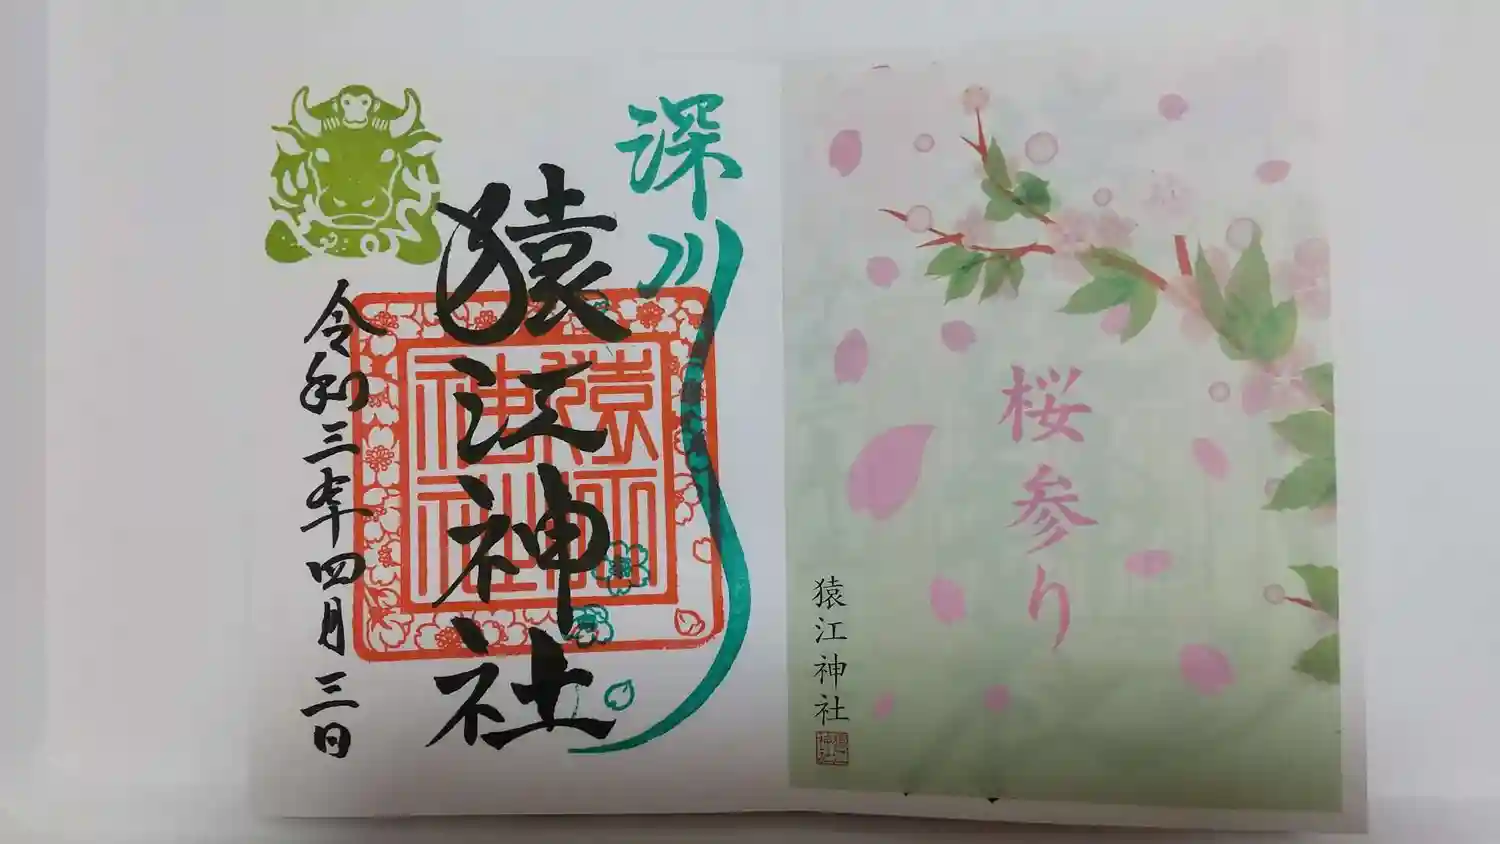 桜参り
猿江神社
深川
猿江神社
猿江神社
令和三年四月三日